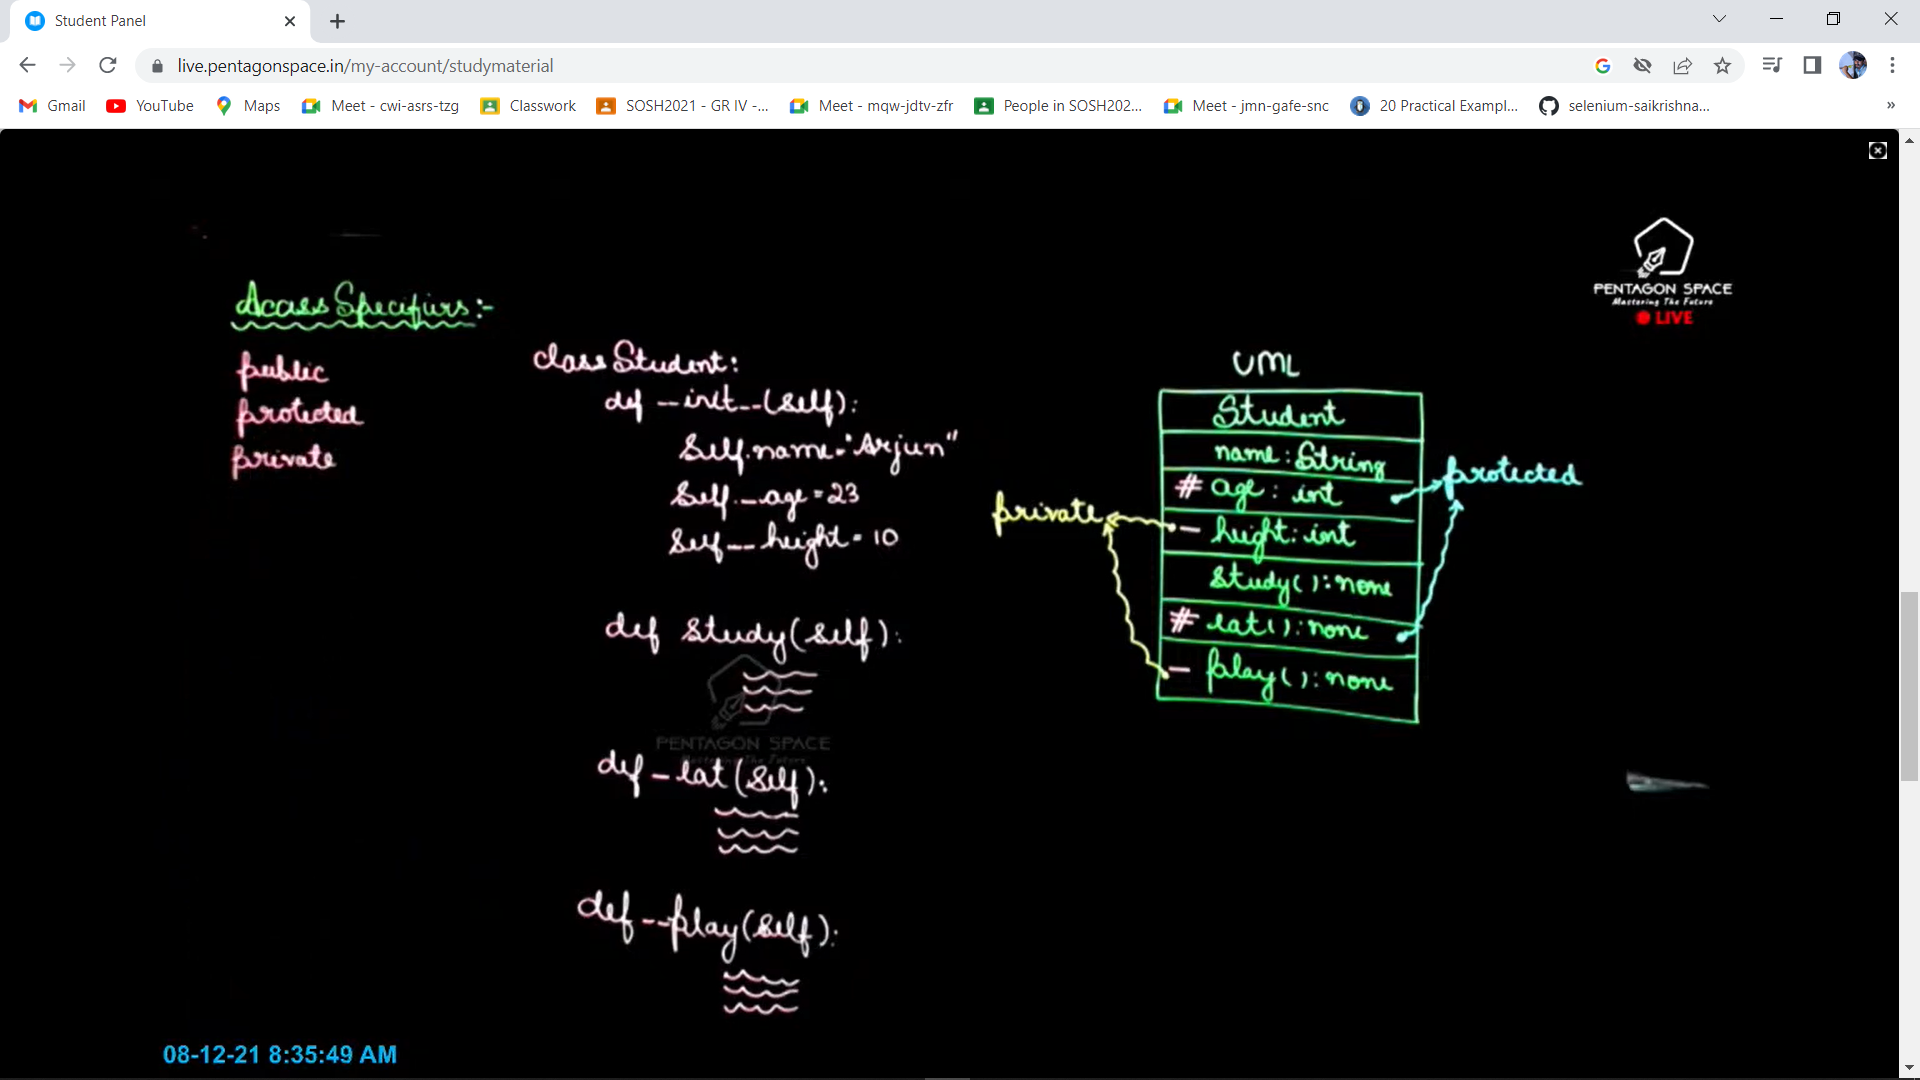 Student Panel
live.pentagonspace.in/my-account/studymaterial
Gmail YouTube Maps Meet - cwi-asrs-tzg Classwork SOSH2021 - GR IV -... Meet - mqw-jdtv-zfr People in SOSH202... Meet - jmn-gafe-snc 20 Practical Exampl... selenium-saikrishna... »
PENTAGON SPACE
Mastering The Future
LIVE
Access Specifiers:-
public
protected
private
class Student:
def __init__(self):
self.name="Arjun"
self._age=23
self.__height=10
def study(self):
PENTAGON SPACE
Mastering The Future
def _eat(self):
def __play(self):
UML
Student
name: String
# age: int
- height: int
study(): none
# eat(): none
- play(): none
private
protected
08-12-21 8:35:49 AM